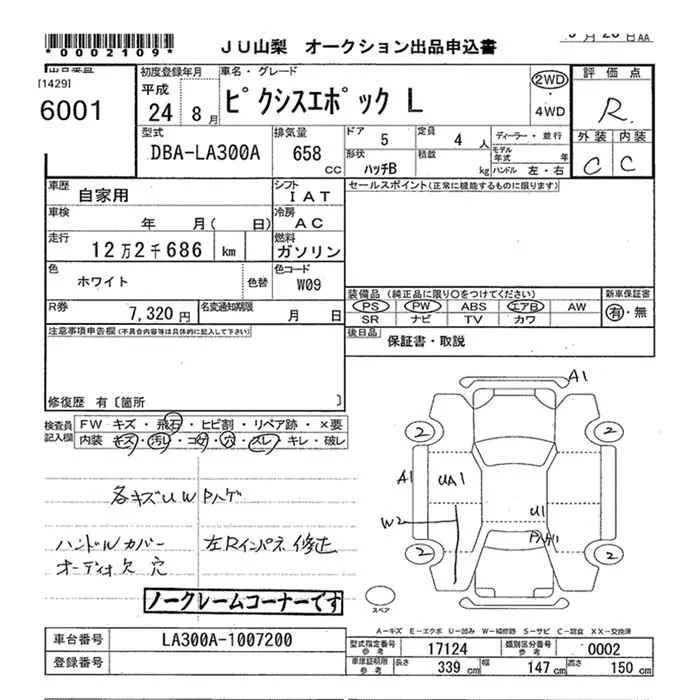 *0002109*
JU山梨 オークション出品申込書
月 日 AA
出品番号
[1429]
6001
初度登録年月
平成
24 8 月
車名・グレード
ピクシスエポック L
2WD
・
4WD
評価点
R
外装 内装
C C
型式
DBA-LA300A
排気量
658 CC
ドア 5
定員 4 人
形状 ハッチB
積載 kg
ディーラー・並行
モデル年式 年
ハンドル 左・右
車歴
自家用
シフト
IAT
セールスポイント(正常に機能するものに限ります)
車検
年 月( 日)
冷房
AC
走行
12万2千686 km
燃料
ガソリン
色
ホワイト
色替
色コード
W09
装備品 (純正品に限り○をつけてください)
PS PW ABS エアB AW
SR ナビ TV カワ
新車保証書
有・無
R券
7,320 円
名変通知期限
月 日
後日品
保証書・取説
注意事項申告欄(不具合内容等は具体的に記入して下さい)
修復歴 有〔箇所 〕
検査員記入欄
FW キズ・飛石・ヒビ割・リペア跡・×要
内装 キズ・汚れ・コゲ・穴・スレ・キレ・破レ
各キズUW Pハゲ
ハンドルカバー
オーディオ欠 穴
左Rインパネ修正
ノークレームコーナーです
A1
2 2
A1
UA1
W2
U1
2 2
スペア
A-キズ E-エクボ U-凹み W-補修跡 S-サビ C-腐食 XX-交換済
車台番号
LA300A-1007200
登録番号
型式指定番号
参考
17124
類別区分番号
参考
0002
車庫証明用
参考
長さ 339 cm
幅 147 cm
高さ 150 cm